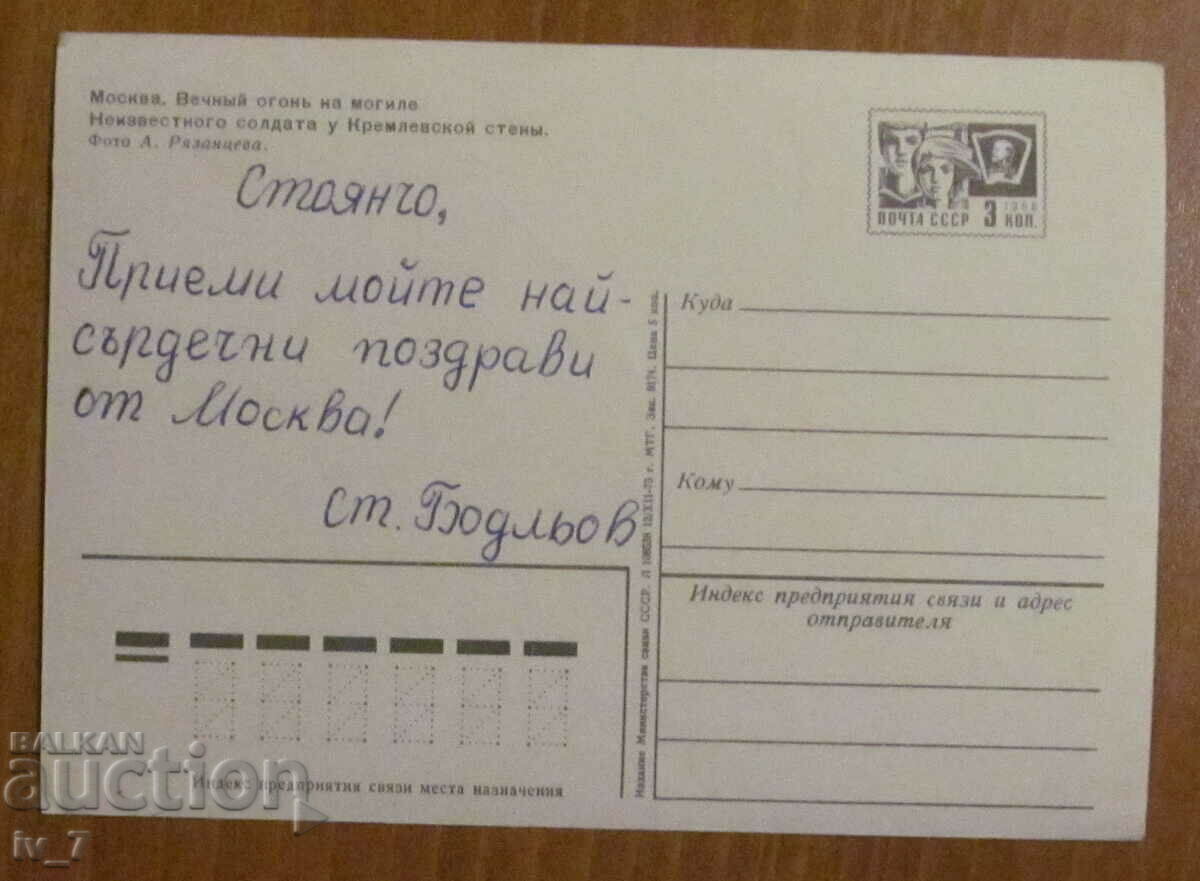 Москва. Вечный огонь на могиле
Неизвестного солдата у Кремлевской стены.
Фото А. Рязанцева.
Стоянчо,
Приеми мойте най-
сърдечни поздрави
от Москва!
ст. Бодльов
ПОЧТА СССР 3 КОП.
1966
Куда
Кому
Индекс предприятия связи и адрес
отправителя
Издание Министерства связи СССР. 12/XII-73 г. МТГ. Зак. Цена 5 коп.
Индекс предприятия связи места назначения
BALKAN
auction
iv_7